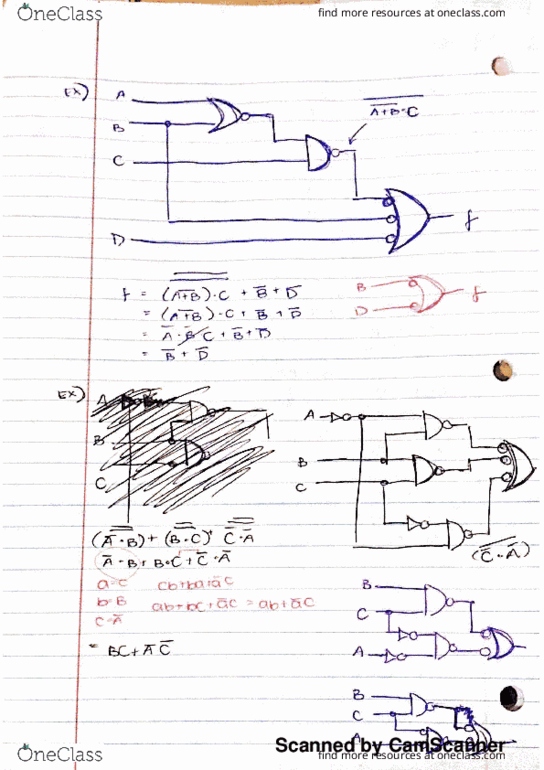 OneClass
find more resources at oneclass.com
EX)
A
B
C
D
f
$\overline{\overline{A+B}\cdot C}$
f = $\overline{\overline{(\overline{A+B})\cdot C}}$ + $\overline{B}$ + $\overline{D}$
= ($\overline{A+B}$)·C + $\overline{B}$ + $\overline{D}$
= $\overline{A}$·$\overline{B}$·C + $\overline{B}$ + $\overline{D}$
= $\overline{B}$ + $\overline{D}$
B
D
f
EX)
A
B
C
A
B
C
($\overline{\overline{\overline{A}\cdot B}}$) + ($\overline{\overline{B\cdot C}}$) + $\overline{\overline{\overline{C}\cdot\overline{A}}}$
($\overline{\overline{C}\cdot\overline{A}}$)
$\overline{A}$·B + B·C + $\overline{C}$·$\overline{A}$
a=C cb+ba+$\overline{a}$C
b=B ab+bc+$\overline{a}$c = ab+$\overline{a}$c
c=$\overline{A}$
= BC + $\overline{A}$ $\overline{C}$
B
C
A
B
C
A
Scanned by CamScanner
OneClass
find more resources at oneclass.com